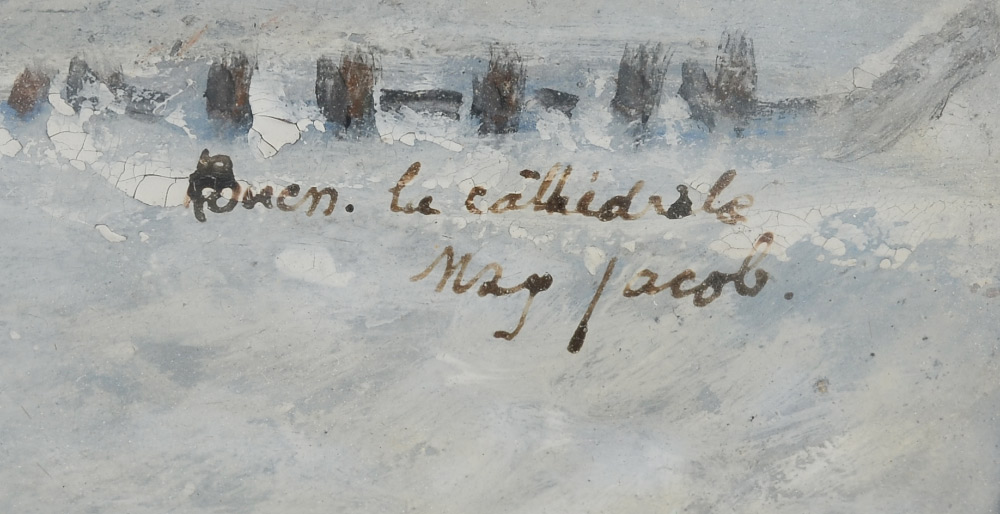 Rouen. la câthédrale
Max Jacob.